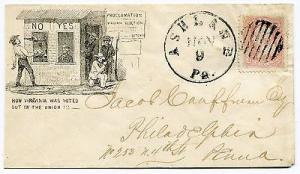 NO
YES
PROCLAMATION
HOW VIRGINIA WAS VOTED
OUT OF THE UNION
ASHLAND
NOV
9
Pa.
Jacob Cauffman Esq
Philadelphia
No 252 N. 4th St
Penna